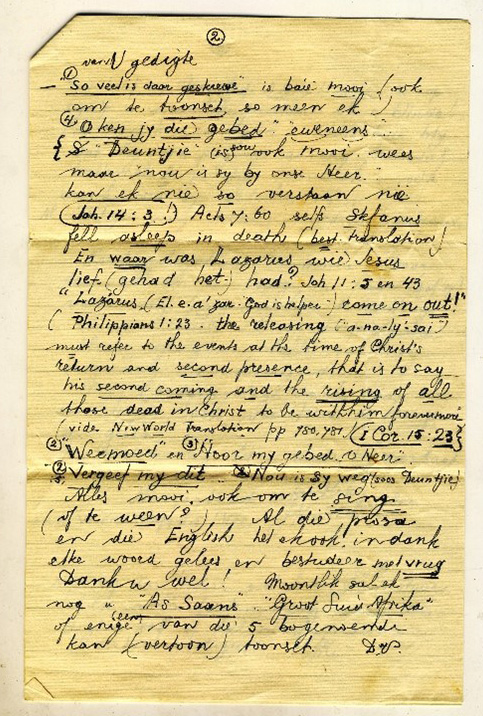 2
van U gedigte
(1) "So veel is daar geskrewe" is baie mooi (ook
om te toonset, so meen ek)
(4) "O ken jy die gebed" eweneens
{ 8 "Deuntjie" (is) sou ook mooi wees
maar nou is sy by onse Heer.
kan ek nie so verstaan nie
(Joh. 14:3!) Acts 7:60 self Stefanus
fell asleep in death (best translation)
En waar was Lazarus wie Jesus
lief (gehad het) had? Joh 11:5 en 43
"Lazarus (El.e-a'zar. God is helper) come on out!"
(Philippians 1:23. the releasing (a-na-ly-sai)
must refer to the events at the time of Christ's
return and second presence, that is to say
his second coming and the rising of all
those dead in Christ to be with him forevermore
(vide New World Translation pp 780, 781) (I Cor. 15:23)}
(2) "Weemoed" en (3) "Hoor my gebed o Heer"
Vergeef my dit Nou is sy weg (soos Deuntjie)
Alles mooi, ook om te sing
(of te ween?) Al die prosa
en die English het ek ook, in dank
elke woord gelees en bestudeer met vrug
Dank u wel! Moontlik sal ek
nog "As Saans" "Groot Suid Afrika"
of enige (een) van die 5 bogenoemde
kan (vertoon) toonset. D.V.